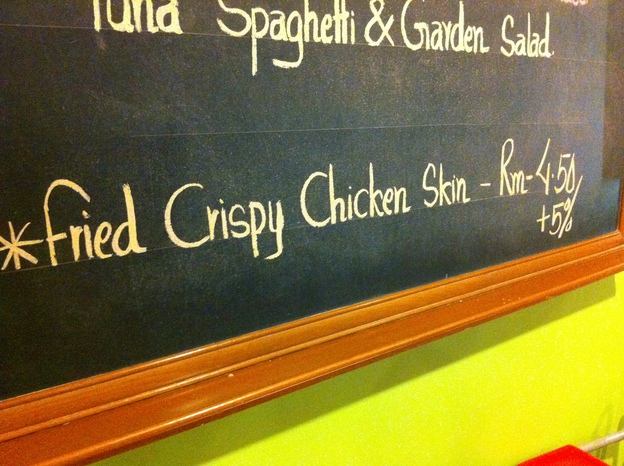 Tuna Spaghetti & Garden Salad.
*Fried Crispy Chicken Skin - Rm-4.50
+5%